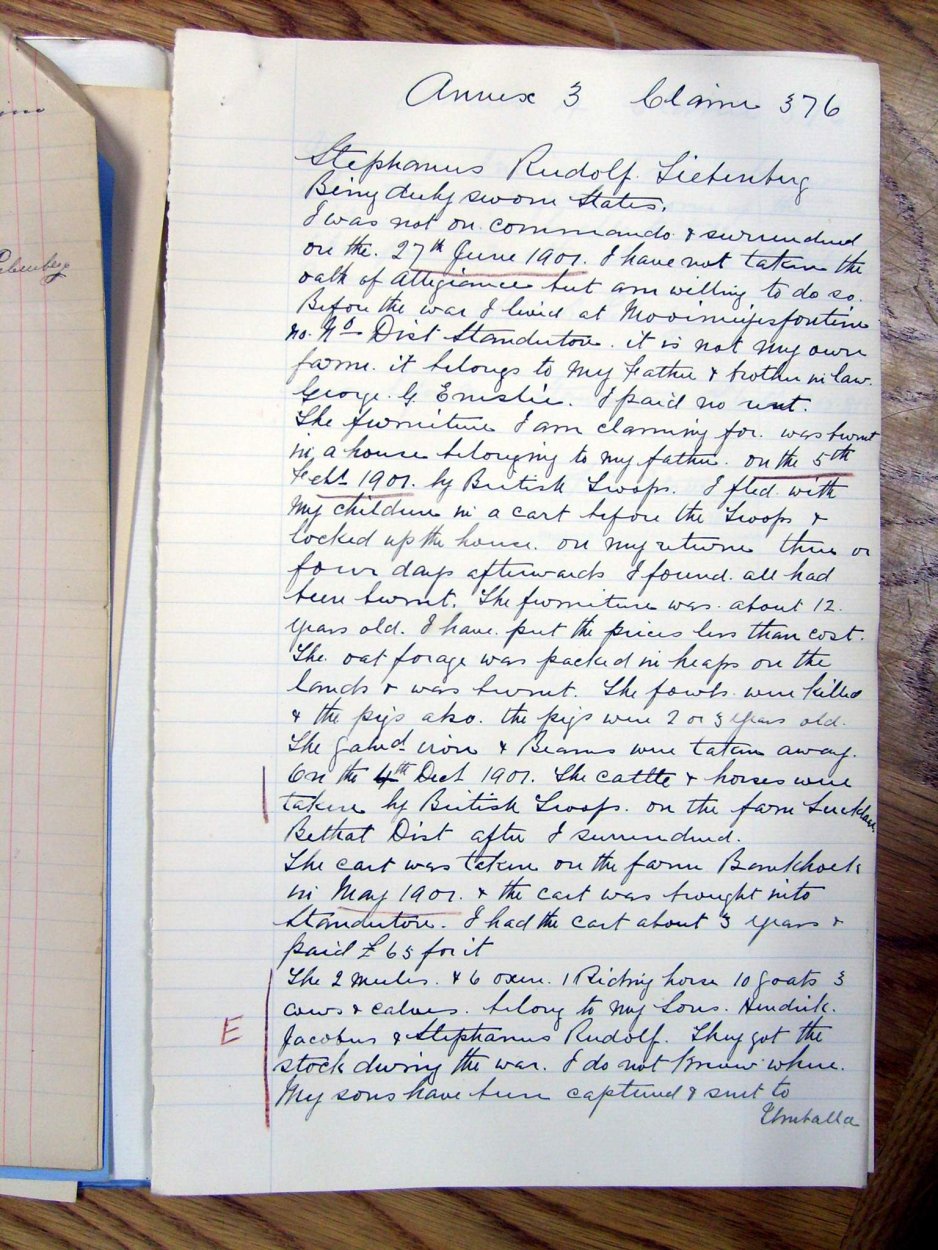 Annex 3 Claim 376
Stephanus Rudolf Liebenberg
Being duly sworn States.
I was not on commando & surrendered
on the 27th June 1901. I have not taken the
oath of Allegiance but am willing to do so.
Before the war I lived at Mooimeijesfontein
no. No Dist Standerton. it is not my own
farm. it belongs to my Father & brother in law
George G Emslie. I paid no rent.
The furniture I am claiming for. was burnt
in a house belonging to my father. on the 5th
Feb. 1901. by British Troops. I fled with
my children in a cart before the Troops &
locked up the house. on my return three or
four days afterwards I found all had
been burnt. The furniture was about 12.
years old. I have put the prices less than cost.
The oat forage was packed in heaps on the
lands & was burnt. The fowls were killed
& the pigs also. the pigs were 2 or 3 years old.
The galvd iron & Beams were taken away.
On the 4th Oct 1901. The cattle & horses were
taken by British Troops. on the farm
Bethal Dist after I surrendered.
The cart was taken on the farm Bankhoek
in May 1901. & the cart was brought into
Standerton. I had the cart about 3 years &
paid £65 for it
The 2 mules. & 6 oxen. 1 Riding horse 10 goats 3
cows & calves. belong to my Sons. Hendrik.
E
Jacobus & Stephanus Rudolf. They got the
stock during the war. I do not know where.
My sons have been captured & sent to
Umballa